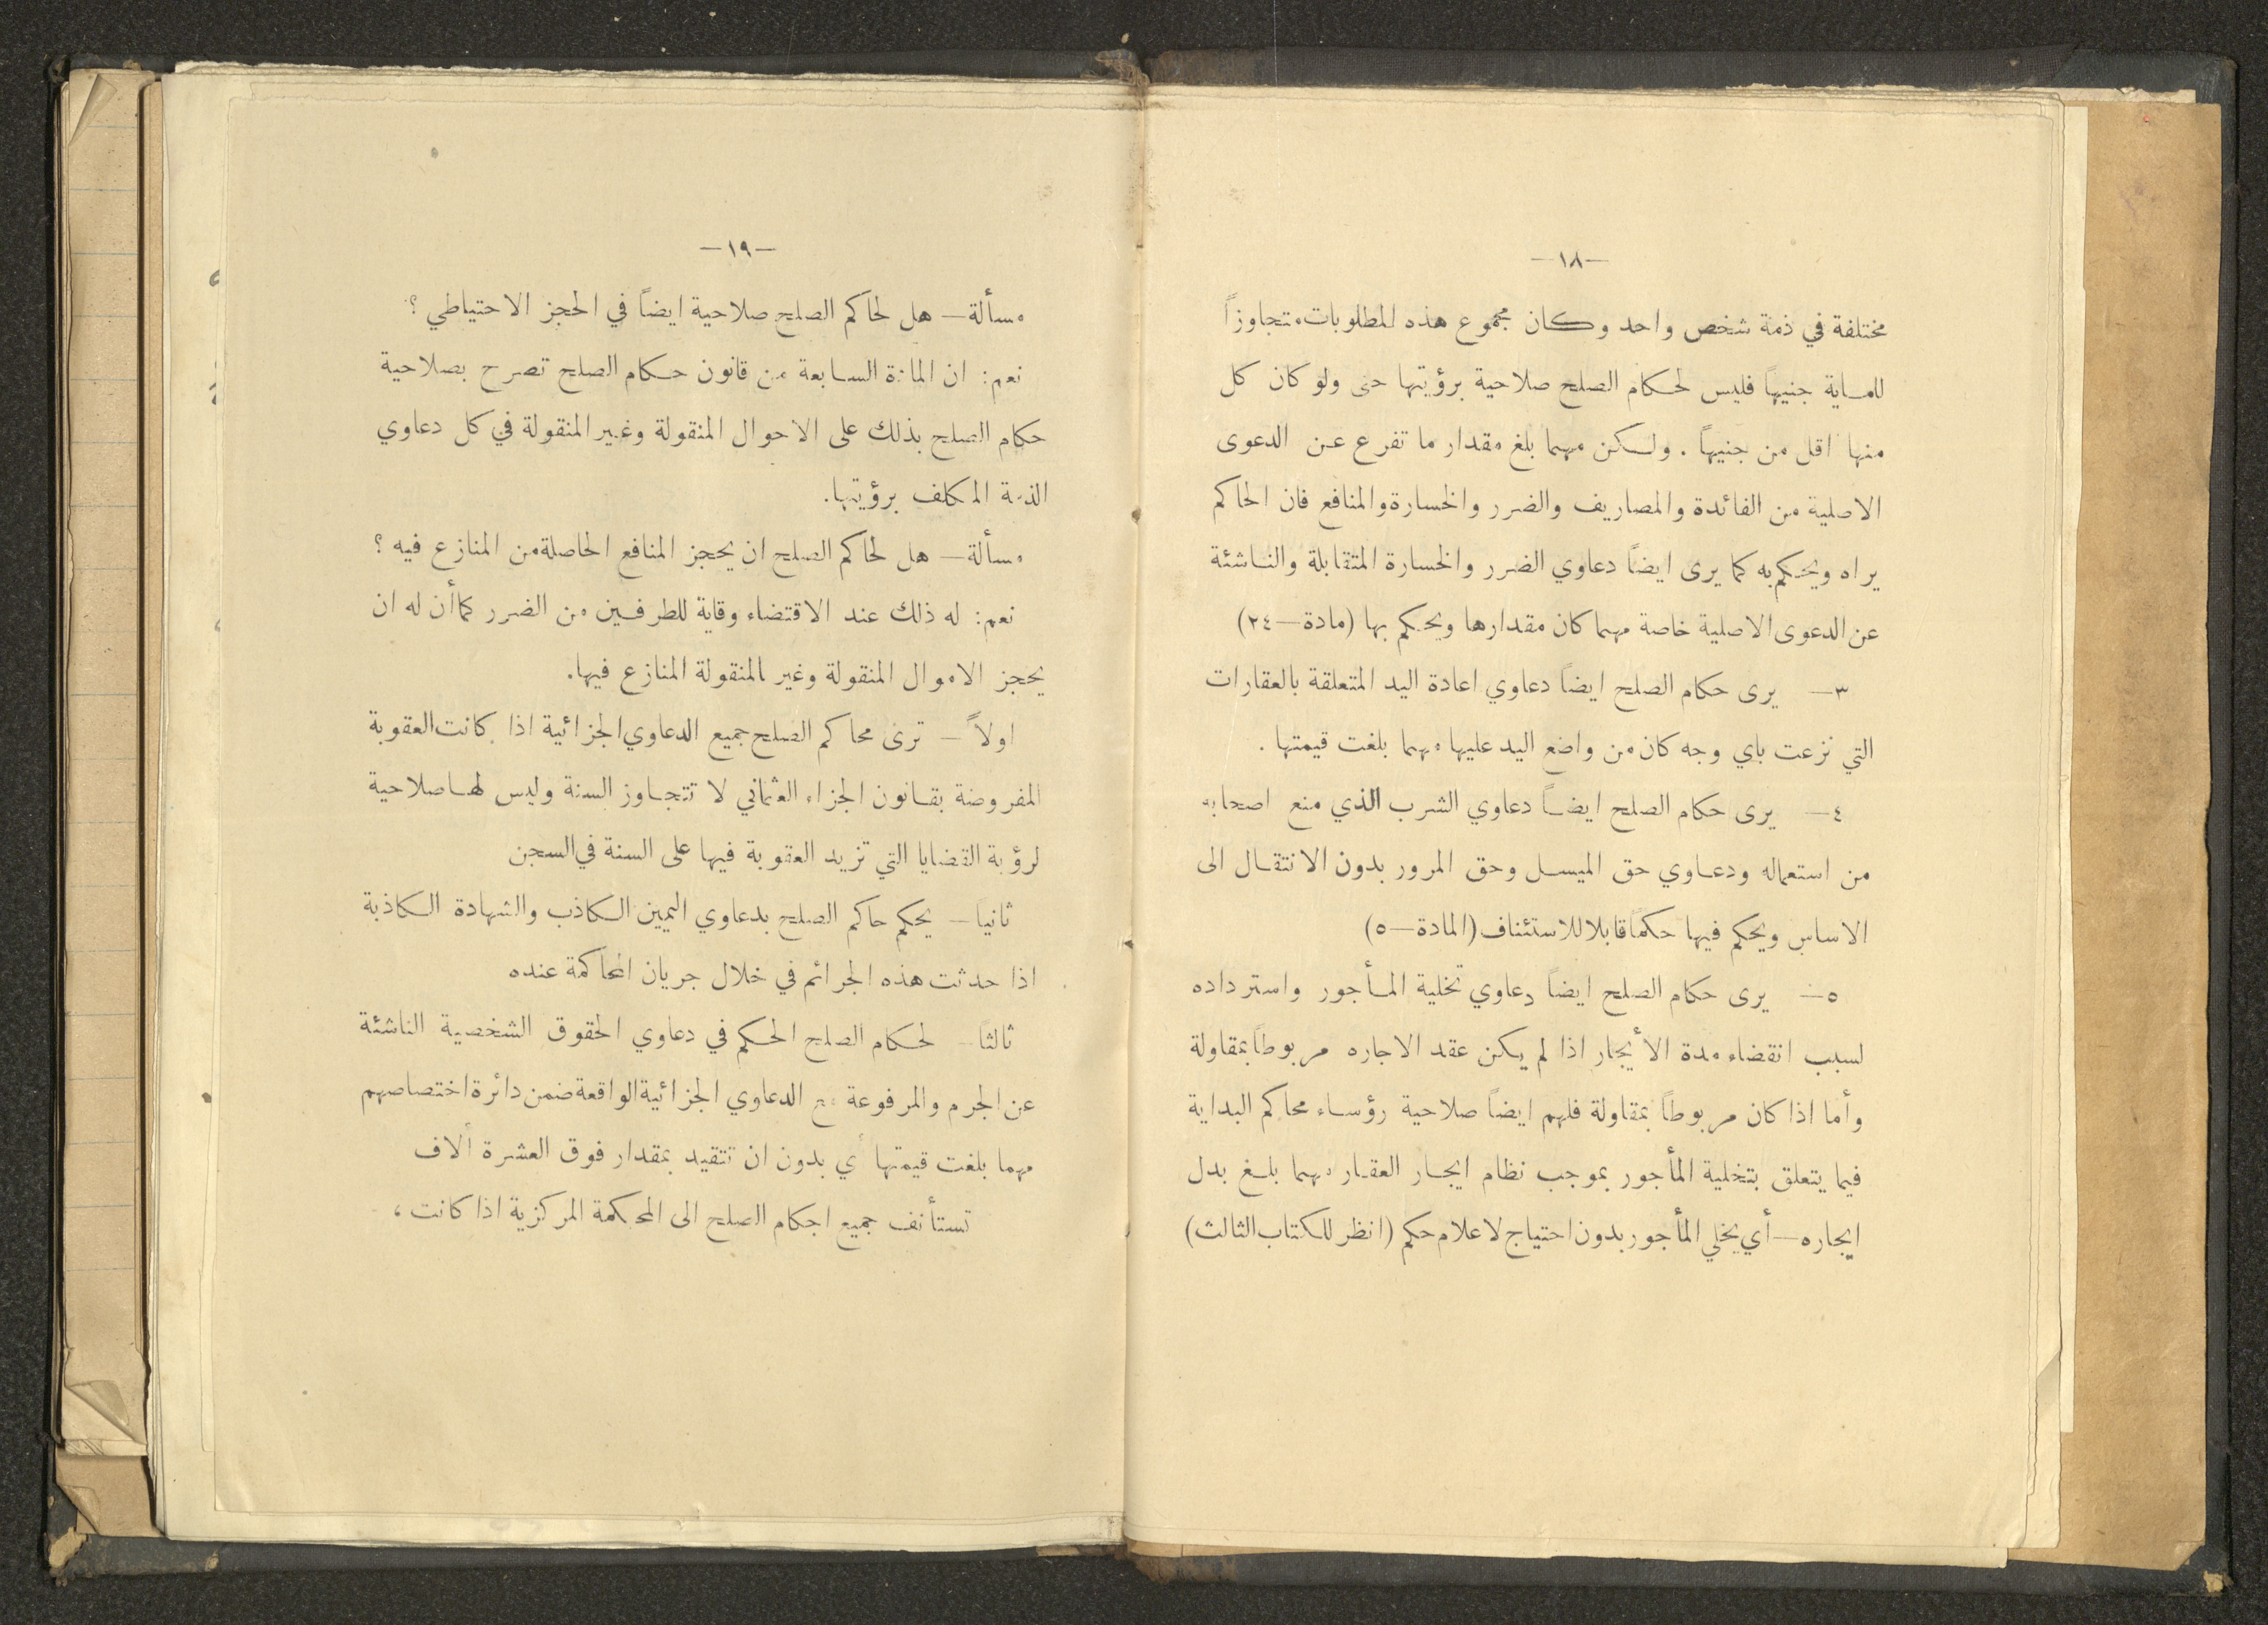 —١٨—
مختلفة في ذمة شخص واحد وكان مجموع هذه المطلوبات متجاوزاً
للماية جنيهاً فليس لحكام الصلح صلاحية برؤيتها حتى ولو كان كل
منها اقل من جنيهاً . ولكن مهما بلغ مقدار ما تفرع عن الدعوى
الاصلية من الفائدة والمصاريف والضرر والخسارة والمنافع فان الحاكم
يراه ويحكم به كما يرى ايضاً دعاوي الضرر والخسارة المتقابلة والناشئة
عن الدعوى الاصلية خاصة مهما كان مقدارها ويحكم بها (مادة—٢٤)
٣— يرى حكام الصلح ايضاً دعاوي اعادة اليد المتعلقة بالعقارات
التي نزعت باي وجه كان من واضع اليد عليها مهما بلغت قيمتها .
٤— يرى حكام الصلح ايضاً دعاوي الشرب الذي منع اصحابه
من استعماله ودعاوي حق الميسل وحق المرور بدون الانتقال الى
الاساس ويحكم فيها حكماً قابلا للاستئناف (المادة—٥)
٥— يرى حكام الصلح ايضاً دعاوي تخلية المأجور واسترداده
لسبب انقضاء مدة الأيجار اذا لم يكن عقد الاجاره مربوطاً بمقاولة
وأما اذا كان مربوطاً بمقاولة فلهم ايضاً صلاحية رؤساء محاكم البداية
فيما يتعلق بتخلية المأجور بموجب نظام ايجار العقار مهما بلغ بدل
ايجاره—أي يخلي المأجور بدون احتياج لاعلام حكم (انظر للكتاب الثالث)
—١٩—
مسألة— هل لحاكم الصلح صلاحية ايضاً في الحجز الاحتياطي ؟
نعم: ان المادة السابعة من قانون حكام الصلح تصرح بصلاحية
حكام الصلح بذلك على الاحوال المنقولة وغير المنقولة في كل دعاوي
الذمة المكلف برؤيتها.
مسألة— هل لحاكم الصلح ان يحجز المنافع الحاصلة من المنازع فيه ؟
نعم: له ذلك عند الاقتضاء وقاية للطرفين من الضرر كما أن له ان
يحجز الاموال المنقولة وغير المنقولة المنازع فيها.
اولاً — ترى محاكم الصلح جميع الدعاوي الجزائية اذا كانت العقوبة
المفروضة بقانون الجزاء العثماني لا تتجاوز السنة وليس لها صلاحية
لرؤية القضايا التي تزيد العقوبة فيها على السنة في السجن
ثانياً — يحكم حاكم الصلح بدعاوي اليمين الكاذب والشهادة الكاذبة
اذا حدثت هذه الجرائم في خلال جريان المحاكمة عنده
ثالثاً — لحكام الصلح الحكم في دعاوي الحقوق الشخصية الناشئة
عن الجرم والمرفوعة مع الدعاوي الجزائية الواقعة ضمن دائرة اختصاصهم
مهما بلغت قيمتها أي بدون ان تتقيد بمقدار فوق العشرة ألاف
تستأنف جميع احكام الصلح الى المحكمة المركزية اذا كانت ،